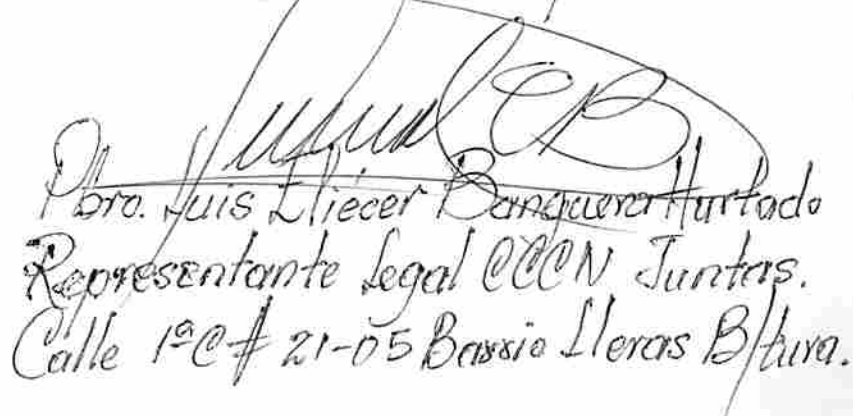 Pbro. Luis Eliécer Banguera Hurtado
Representante Legal CCCN Juntas.
Calle 1ª C # 21-05 Barrio Lleras B/tura.